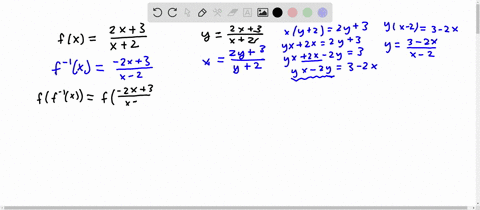 f(x) = \frac{2x+3}{x+2}
f^{-1}(x) = \frac{-2x+3}{x-2}
f(f^{-1}(x)) = f(\frac{-2x+3}{x-
y = \frac{2x+3}{x+2}
x = \frac{2y+3}{y+2}
x(y+2) = 2y+3
yx+2x = 2y+3
yx+2x-2y = 3
yx-2y = 3-2x
y(x-2) = 3-2x
y = \frac{3-2x}{x-2}